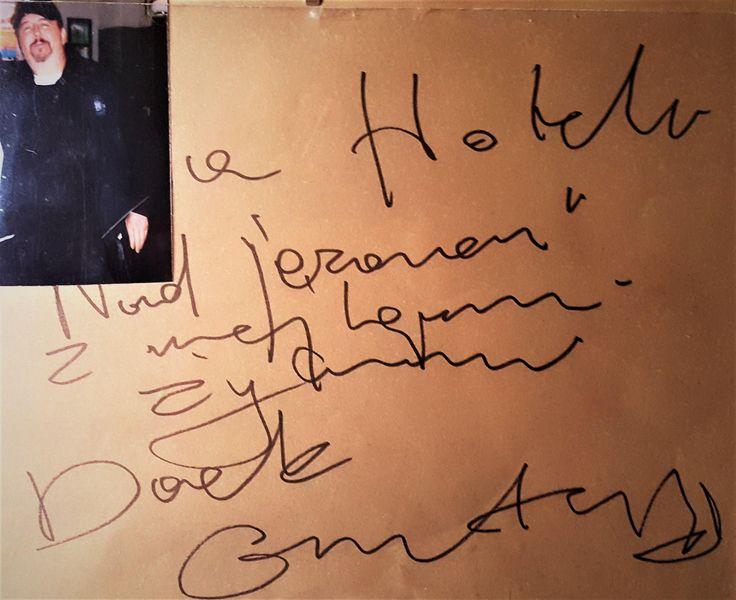 a Hotelu
Nad jeziorem"
z najlepszymi
życzeniami
Darek